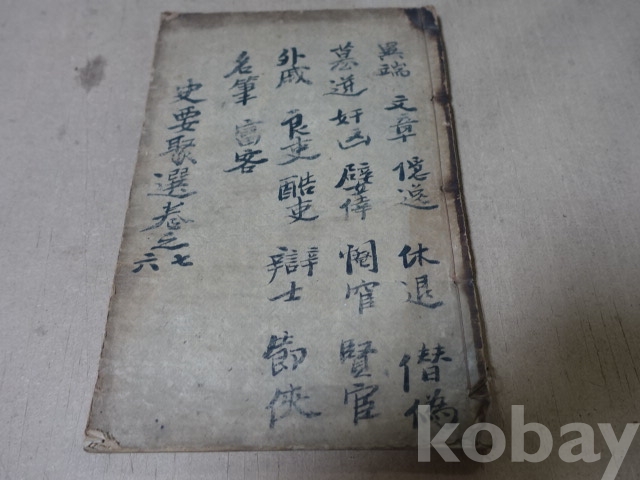 異端 文章 隱逸 休退 僭僞
逆 奸凶 嬖倖 宦 賢宦
外戚 良吏 酷吏 辯士 節俠
名筆 富客
史要聚選卷之六七
kobay